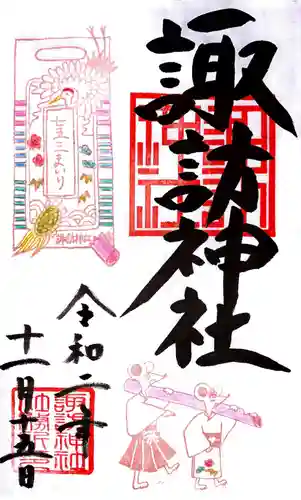 諏訪神社
七五三まいり
令和二年
十一月十五日
諏訪神社